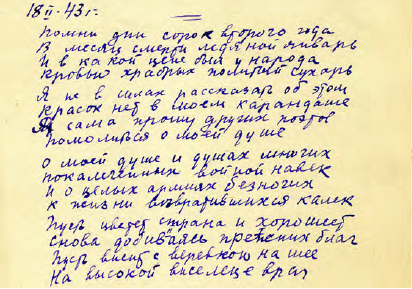 18 II - 43 г.
Помни дни сорок второго года
В месяц смерти ледяной январь
И в какой цене был у народа
Кровью храбрых политый сухарь
Я не в силах рассказать об этом
Красок нет в моем карандаше
Я сама прошу других поэтов
Помолиться о моей душе
О моей душе и душах многих
Покалеченных войной навек
И о целых армиях безногих
К жизни возвратившихся калек
Пусть цветет страна и хорошеет
Снова добиваясь прежних благ
Пусть висит с веревкой на шее
На высокой виселице враг